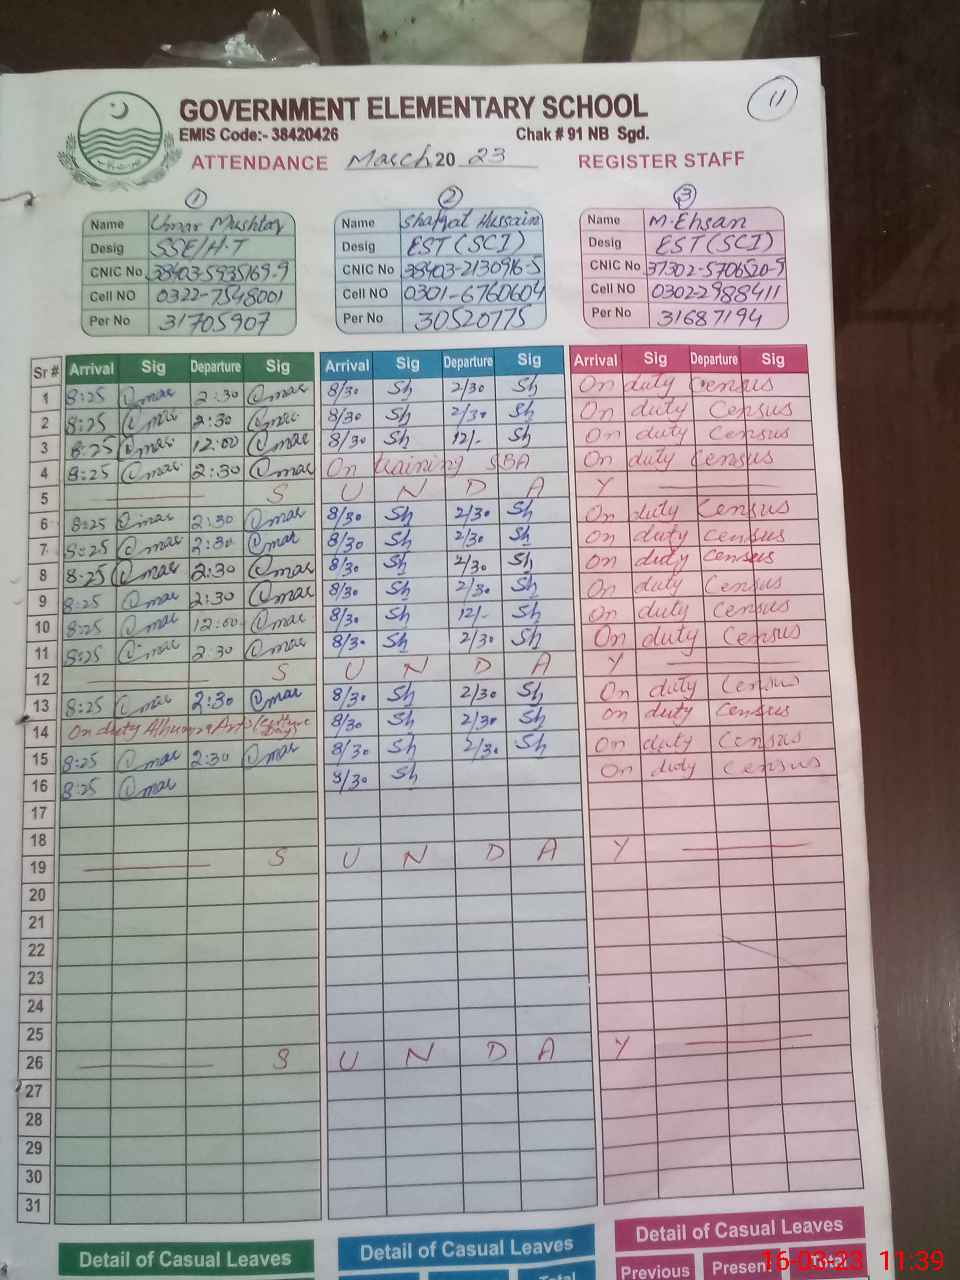 11
GOVERNMENT ELEMENTARY SCHOOL
EMIS Code:- 38420426 Chak # 91 NB Sgd.
ATTENDANCE March 20 23 REGISTER STAFF
1 2 3
Name Umar Mushtaq Name Shafqat Hussain Name M. Ehsan
Desig SSE/H.T Desig EST (SCI) Desig EST (SCI)
CNIC No 38403-5935169-9 CNIC No 38403-2130916-5 CNIC No 37302-5706520-9
Cell NO 0322-7548001 Cell NO 0301-6760604 Cell NO 0302-2988411
Per No 31705907 Per No 30520775 Per No 31687194
Sr # Arrival Sig Departure Sig Arrival Sig Departure Sig Arrival Sig Departure Sig
1 8:25 @mar 2:30 @mar 8/30 Sh 2/30 Sh On duty Census
2 8:25 @mar 2:30 @mar 8/30 Sh 2/30 Sh On duty Census
3 8:25 @mar 12:00 @mar 8/30 Sh 12/- Sh On duty Census
4 8:25 @mar 2:30 @mar On training SBA On duty Census
5 S U N D A Y
6 8:25 @mar 2:30 @mar 8/30 Sh 2/30 Sh On duty Census
7 8:25 @mar 2:30 @mar 8/30 Sh 2/30 Sh On duty Census
8 8:25 @mar 2:30 @mar 8/30 Sh 2/30 Sh On duty Census
9 8:25 @mar 2:30 @mar 8/30 Sh 2/30 Sh On duty Census
10 8:25 @mar 12:00 @mar 8/30 Sh 12/- Sh On duty Census
11 8:25 @mar 2:30 @mar 8/30 Sh 2/30 Sh On duty Census
12 S U N D A Y
13 8:25 @mar 2:30 @mar 8/30 Sh 2/30 Sh On duty Census
14 On duty 8/30 Sh 2/30 Sh On duty Census
15 8:25 @mar 2:30 @mar 8/30 Sh 2/30 Sh On duty Census
16 8:25 @mar 8/30 Sh On duty Census
17
18
19 S U N D A Y
20
21
22
23
24
25
26 S U N D A Y
27
28
29
30
31
Detail of Casual Leaves Detail of Casual Leaves Detail of Casual Leaves
Total Previous Present Total
16-03-23 11:39